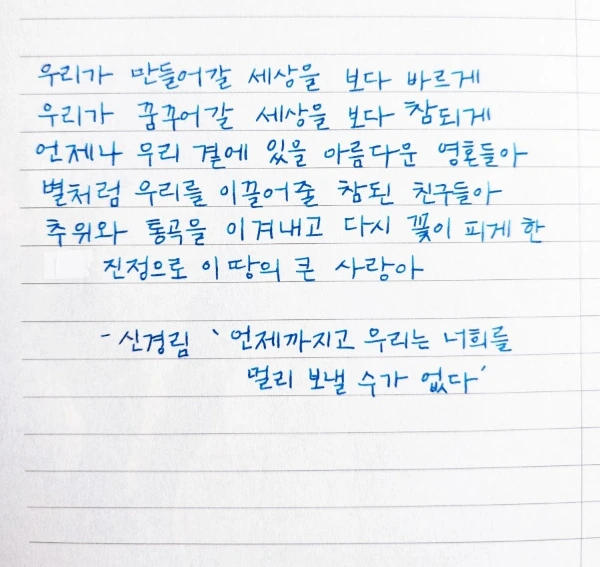 우리가 만들어갈 세상을 보다 바르게
우리가 꿈꾸어갈 세상을 보다 참되게
언제나 우리 곁에 있을 아름다운 영혼들아
별처럼 우리를 이끌어줄 참된 친구들아
추위와 통곡을 이겨내고 다시 꽃이 피게 한
진정으로 이 땅의 큰 사랑아
- 신경림 ‵ 언제까지고 우리는 너희를
멀리 보낼 수가 없다′